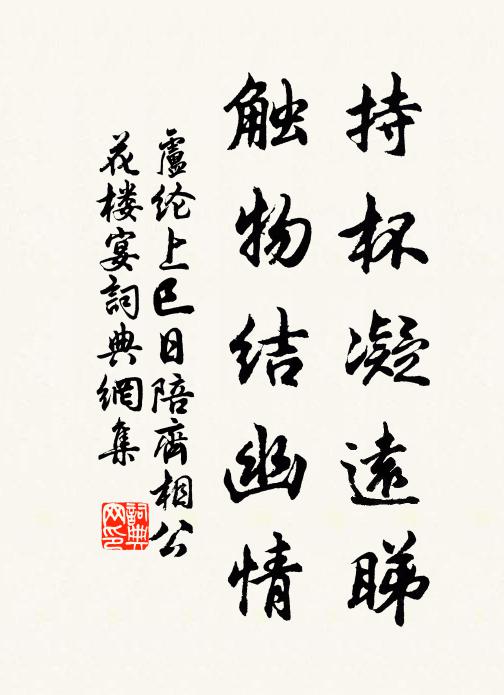 持杯凝遠睇
触物结幽情
盧纶上巳日陪齊相公
花楼宴詞典網集
詞典网印